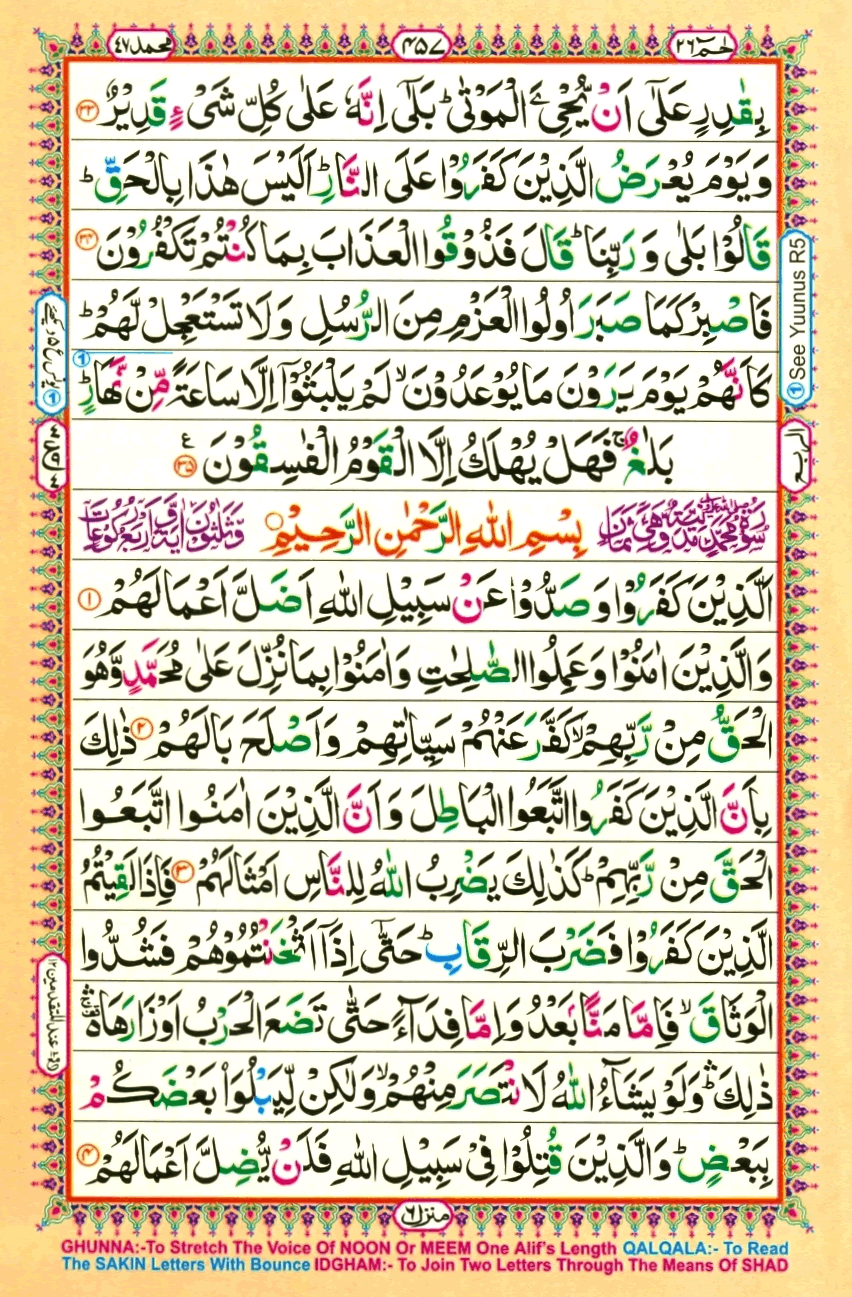 حٰمٓ ٢٦
٤٥٧
محمد ٤٧
بِقٰدِرٍ عَلٰٓى اَنْ يُّحْيِۦَ الْمَوْتٰى ؕ بَلٰٓى اِنَّهٗ عَلٰى كُلِّ شَىْءٍ قَدِيْرٌ ﴿۳۳﴾
وَيَوْمَ يُعْرَضُ الَّذِيْنَ كَفَرُوْا عَلَى النَّارِ ؕ اَلَيْسَ هٰذَا بِالْحَقِّ ؕ
قَالُوْا بَلٰى وَرَبِّنَا ؕ قَالَ فَذُوْقُوا الْعَذَابَ بِمَا كُنْتُمْ تَكْفُرُوْنَ ﴿۳۴﴾
فَاصْبِرْ كَمَا صَبَرَ اُولُوا الْعَزْمِ مِنَ الرُّسُلِ وَلَا تَسْتَعْجِلْ لَّهُمْ ؕ
كَاَنَّهُمْ يَوْمَ يَرَوْنَ مَا يُوْعَدُوْنَ ۙ لَمْ يَلْبَثُوْۤا اِلَّا سَاعَةً مِّنْ نَّهَارٍ ؕ
بَلٰغٌ ۚ فَهَلْ يُهْلَكُ اِلَّا الْقَوْمُ الْفٰسِقُوْنَ ﴿۳۵﴾ ع
سُوْرَةُ مُحَمَّدٍ مَدَنِيَّةٌ وَّهِىَ ثَمَانٌ بِسْمِ اللهِ الرَّحْمٰنِ الرَّحِيْمِ وَّثَلٰثُوْنَ اٰيَةً وَّاَرْبَعُ رُكُوْعَاتٍ
اَلَّذِيْنَ كَفَرُوْا وَصَدُّوْا عَنْ سَبِيْلِ اللهِ اَضَلَّ اَعْمَالَهُمْ ﴿۱﴾
وَالَّذِيْنَ اٰمَنُوْا وَعَمِلُوا الصّٰلِحٰتِ وَاٰمَنُوْا بِمَا نُزِّلَ عَلٰى مُحَمَّدٍ وَّهُوَ
الْحَقُّ مِنْ رَّبِّهِمْ ۙ كَفَّرَ عَنْهُمْ سَيِّاٰتِهِمْ وَاَصْلَحَ بَالَهُمْ ﴿۲﴾ ذٰلِكَ
بِاَنَّ الَّذِيْنَ كَفَرُوا اتَّبَعُوا الْبَاطِلَ وَاَنَّ الَّذِيْنَ اٰمَنُوا اتَّبَعُوا
الْحَقَّ مِنْ رَّبِّهِمْ ؕ كَذٰلِكَ يَضْرِبُ اللهُ لِلنَّاسِ اَمْثَالَهُمْ ﴿۳﴾ فَاِذَا لَقِيْتُمُ
الَّذِيْنَ كَفَرُوْا فَضَرْبَ الرِّقَابِ ؕ حَتّٰۤى اِذَاۤ اَثْخَنْتُمُوْهُمْ فَشُدُّوا
الْوَثَاقَ ۙ فَاِمَّا مَنًّۢا بَعْدُ وَاِمَّا فِدَآءً حَتّٰى تَضَعَ الْحَرْبُ اَوْزَارَهَا ۛ
ذٰلِكَ ؕ ۛ وَلَوْ يَشَآءُ اللهُ لَانْتَصَرَ مِنْهُمْ ۙ وَلٰكِنْ لِّيَبْلُوَا۟ بَعْضَكُمْ
بِبَعْضٍ ؕ وَالَّذِيْنَ قُتِلُوْا فِىْ سَبِيْلِ اللهِ فَلَنْ يُّضِلَّ اَعْمَالَهُمْ ﴿۴﴾
See Yuunus R5
الربع
منزل ٦
GHUNNA:-To Stretch The Voice Of NOON Or MEEM One Alif's Length QALQALA:- To Read
The SAKIN Letters With Bounce IDGHAM:- To Join Two Letters Through The Means Of SHAD